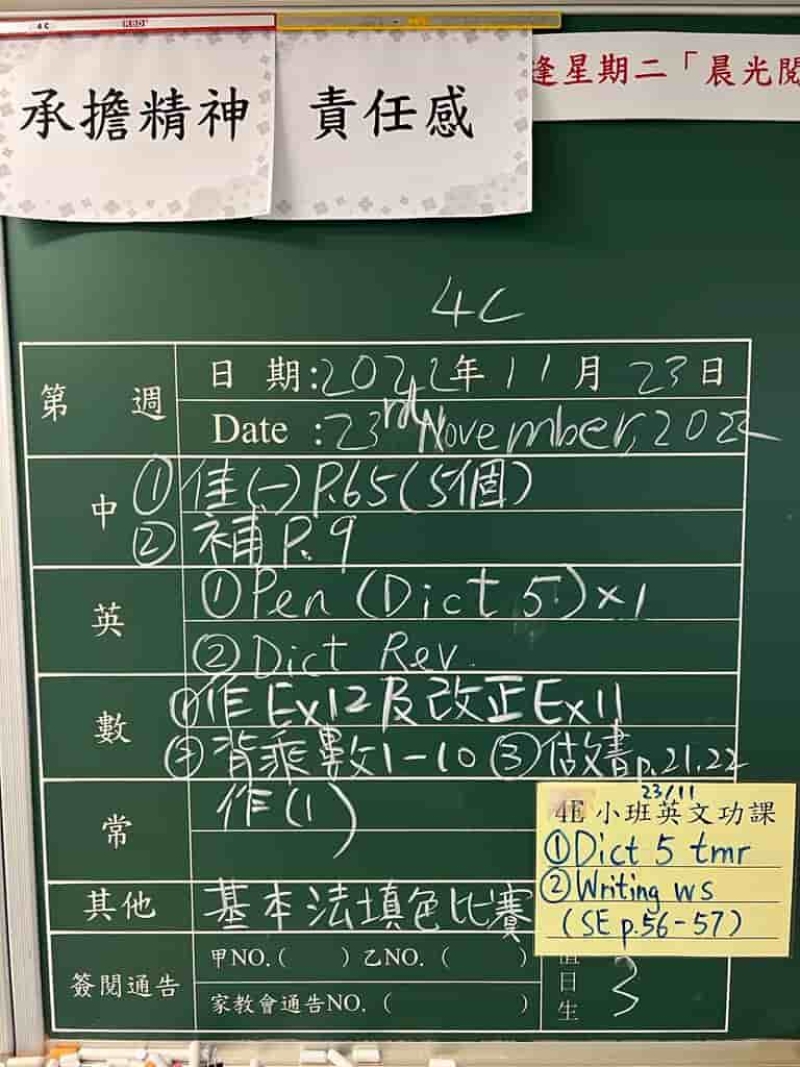 4C
承擔精神
責任感
逢星期二「晨光閱
4C
第 週
日 期:2022年11月23日
Date :23rd November, 2022
中
①佳(一)P.65(5個)
②補P.9
英
①Pen (Dict 5)×1
②Dict Rev.
數
①作Ex12及改正Ex11
②背乘數1-10 ③做書p.21,22
常
作(1)
其他
基本法填色比賽
簽閱通告
甲NO.( ) 乙NO.( )
家教會通告NO.( )
值日生
3
23/11
4E 小班英文功課
①Dict 5 tmr
②Writing ws
(SE p.56-57)